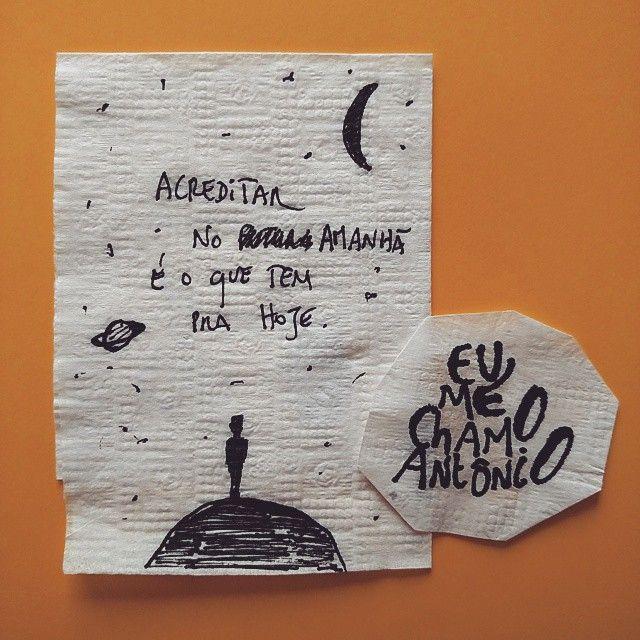 ACREDITAR
NO AMANHÃ
É O QUE TEM
PRA HOJE.
EU
ME
CHAMO
ANTÔNIO